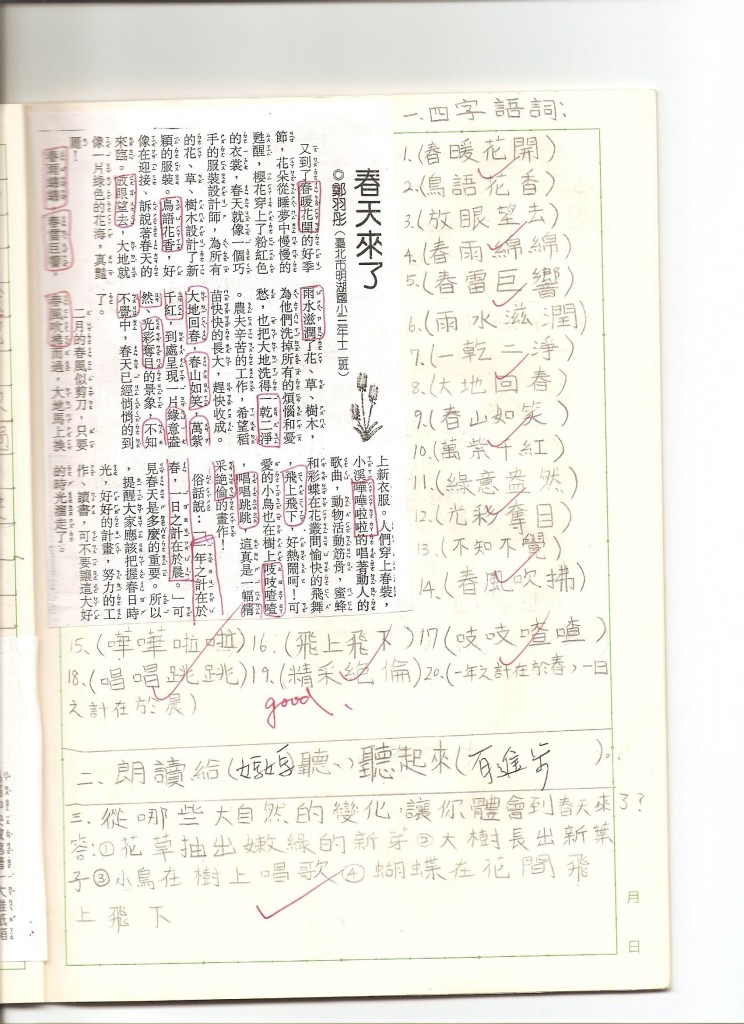 春天來了
◎鄭羽彤(臺北市明湖國小三年十二班)
又到了春暖花開的好季
節,花朵從睡夢中慢慢的
甦醒,櫻花穿上了粉紅色
的衣裳,春天就像一個巧
手的服裝設計師,為所有
的花、草、樹木設計了新
穎的服裝。鳥語花香,好
像在迎接、訴說著春天的
來臨。放眼望去,大地就
像一片綠色的花海,真豔
麗!
春雨綿綿,春雷巨響。
雨水滋潤了花、草、樹木,
為他們洗掉所有的煩惱和憂
愁,也把大地洗得一乾二淨
。農夫辛苦的工作,希望稻
苗快快的長大,趕快收成。
大地回春,春山如笑,萬紫
千紅,到處呈現一片綠意盎
然、光彩奪目的景象,不知
不覺中,春天已經悄悄的到
了。
二月的春風似剪刀,只要
春風吹拂而過,大地馬上換
上新衣服。人們穿上春裝,
小溪嘩嘩啦啦的唱著動人的
歌曲,動物活動筋骨,蜜蜂
和彩蝶在花叢間愉快的飛舞
,飛上飛下,好熱鬧呵!可
愛的小鳥也在樹上吱吱喳喳
、唱唱跳跳,這真是一幅精
采絕倫的畫作!
俗話說:「一年之計在於
春,一日之計在於晨。」可
見春天是多麼的重要。所以
,提醒大家應該把握春日時
光,好好的計畫,努力的工
作、讀書,可不要讓這大好
的時光溜走了。
一、四字語詞:
1.(春暖花開)
2.(鳥語花香)
3.(放眼望去)
4.(春雨綿綿)
5.(春雷巨響)
6.(雨水滋潤)
7.(一乾二淨)
8.(大地回春)
9.(春山如笑)
10.(萬紫千紅)
11.(綠意盎然)
12.(光彩奪目)
13.(不知不覺)
14.(春風吹拂)
15.(嘩嘩啦啦)16.(飛上飛下)17(吱吱喳喳)
18.(唱唱跳跳)19.(精采絕倫)20.(一年之計在於春,一日
之計在於晨)
good
二、朗讀給(媽媽)聽,聽起來(有進步)。
三、從哪些大自然的變化,讓你體會到春天來了?
答:①花草抽出嫩綠的新芽②大樹長出新葉
子③小鳥在樹上唱歌④蝴蝶在花間飛
上飛下
月
日